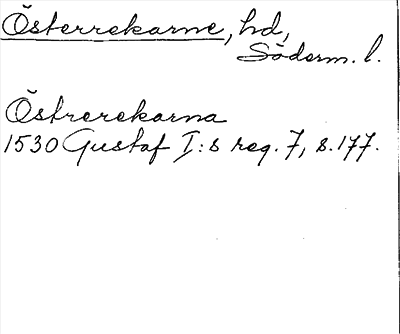 Österrekarne, hd,
Söderm. l.
Östrerekarna
1530 Gustaf I:s reg. 7, s. 177.